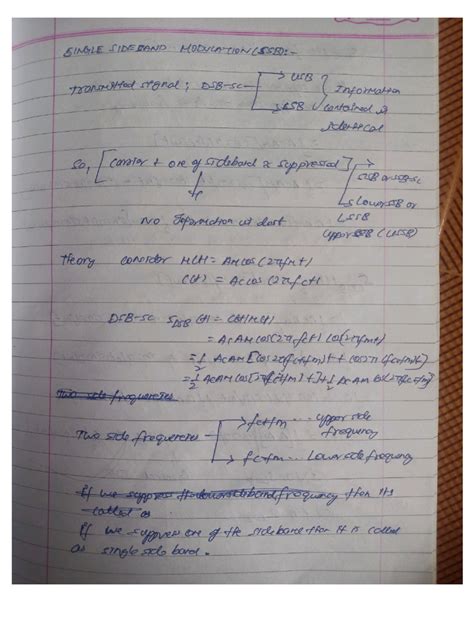 SINGLE SIDEBAND MODULATION (SSB):-
Transmitted signal; DSB-SC → USB } Information
→ LSB contained is
identical
So, [carrier + one of sideband is suppressed] → SSB or SSB-SC
→ Lower SSB or
LSSB
No Information is lost
Upper SSB (USSB)
Theory consider M(t) = AM cos(2πfmt)
C(t) = Ac cos(2πfct)
DSB-SC SDSB(t) = C(t)M(t)
= AcAM cos(2πfct) cos(2πfmt)
= 1/2 AcAM [cos2π(fc+fm)t + cos2π(fc-fm)t]
= 1/2 AcAM cos[2π(fc+fm)t] + 1/2 AcAM cos(2π(fc-fm)
Two side frequencies
Two side frequencies → fc+fm ... upper side
frequency
→ fc-fm ... Lower side frequency
If we suppress the lower sideband frequency then it is
called as
If we suppress one of the sideband then it is called
as single side band.